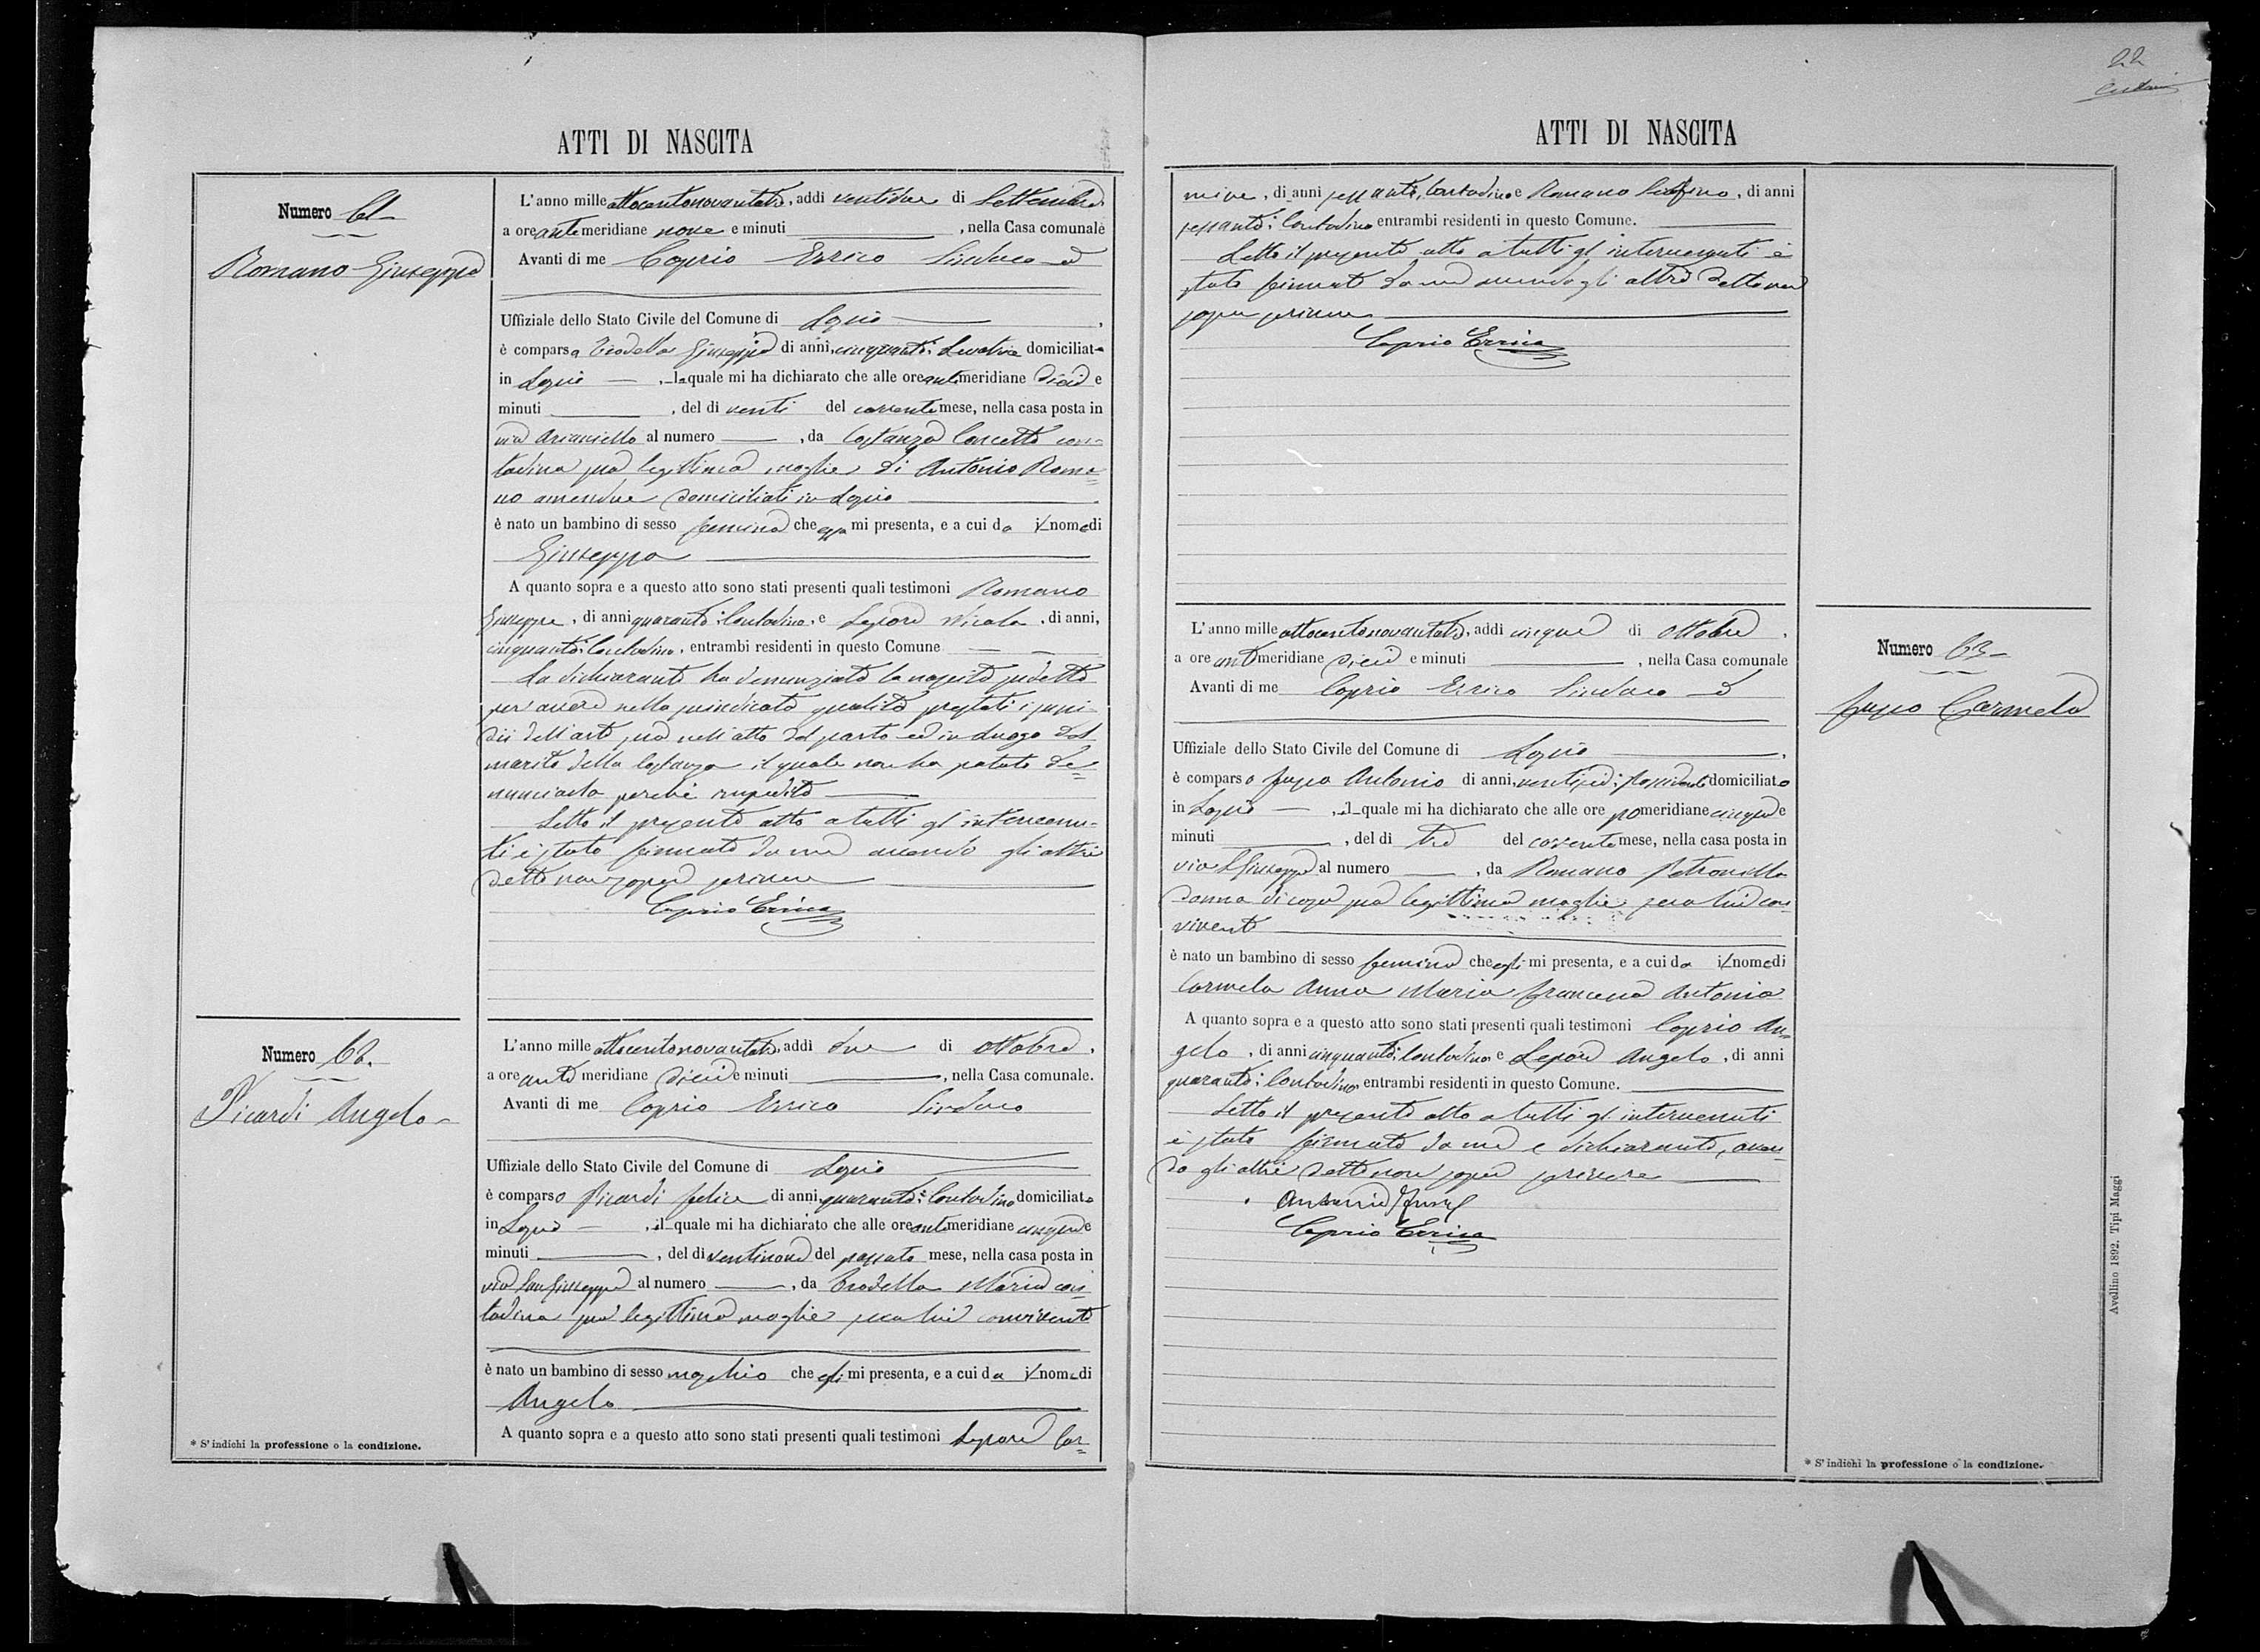 22
ATTI DI NASCITA
Numero 61
Romano Giuseppa
L'anno mille ottocentonovantatre, addi ventidue di Settembre
a ore antimeridiane nove e minuti , nella Casa comunale
Avanti di me Caprio Errico Sindaco
Uffiziale dello Stato Civile del Comune di
è comparsa Giuseppa di anni, cinquanta: Levatrice domiciliata
in , la quale mi ha dichiarato che alle ore antimeridiane dieci e
minuti , del di venti del corrente mese, nella casa posta in
via Arianiello al numero , da Costanza Concetta con=
tadina sua legittima moglie di Antonio Roma=
no amendue domiciliati in
è nato un bambino di sesso femmina che essa mi presenta, e a cui da i nome di
Giuseppa
A quanto sopra e a questo atto sono stati presenti quali testimoni Romano
Giuseppe, di anni quaranta: Contadino, e Lepore Nicola, di anni,
cinquanta: Contadino, entrambi residenti in questo Comune
La dichiarante ha denunziato la nascita sudetta
per avere nella suindicata qualità prestati i sussi=
dii dell'arte sua nell'atto del parto ed in luogo del
marito della Costanza il quale non ha potuto de=
nunciarla perchè impedito
Letto il presente atto a tutti gl'intervenu=
ti è stato firmato da me avendo gli altri
detto non sapere scrivere
Caprio Errico
Numero 62.
Picardi Angelo
L'anno mille ottocentonovantatre, addi due di Ottobre,
a ore ante meridiane dieci e minuti , nella Casa comunale.
Avanti di me Caprio Errico Sindaco
Uffiziale dello Stato Civile del Comune di
è comparso Picardi Felice di anni, quaranta: Contadino domiciliato
in , il quale mi ha dichiarato che alle ore antimeridiane cinque e
minuti , del di ventinove del passato mese, nella casa posta in
via San Giuseppe al numero , da Maria con=
tadina sua legittima moglie seco lui convivente
è nato un bambino di sesso maschio che egli mi presenta, e a cui da i nome di
Angelo
A quanto sopra e a questo atto sono stati presenti quali testimoni Lepore Car=
* S'indichi la professione o la condizione.
ATTI DI NASCITA
mine, di anni sessanta, Contadino e Romano Serafino, di anni
sessanta: Contadino entrambi residenti in questo Comune.
Letto il presente atto a tutti gl'intervenuti è
stato firmato da me avendo gli altri detto non
sapere scrivere
Caprio Errico
Numero 63
Fusco Carmela
L'anno mille ottocentonovantatre, addi cinque di Ottobre,
a ore antimeridiane dieci e minuti , nella Casa comunale
Avanti di me Caprio Errico Sindaco
Uffiziale dello Stato Civile del Comune di
è comparso Fusco Antonio di anni, ventisei: Possidente domiciliato
in , il quale mi ha dichiarato che alle ore pomeridiane cinque e
minuti , del di tre del corrente mese, nella casa posta in
via S. Giuseppe al numero , da Romano Petronilla
donna di casa sua legittima moglie seco lui con=
vivente
è nato un bambino di sesso femmina che egli mi presenta, e a cui da i nome di
Carmela Anna Maria Francesca Antonia
A quanto sopra e a questo atto sono stati presenti quali testimoni Caprio An=
gelo, di anni cinquanta: Contadino e Lepore Angelo, di anni
quaranta: Contadino, entrambi residenti in questo Comune.
Letto il presente atto a tutti gl'intervenuti
è stato firmato da me e dichiarante, aven=
do gli altri detto non saper scrivere
Antonio Fusco
Caprio Errico
* S'indichi la professione o la condizione.
Avellino 1892. Tipi Maggi